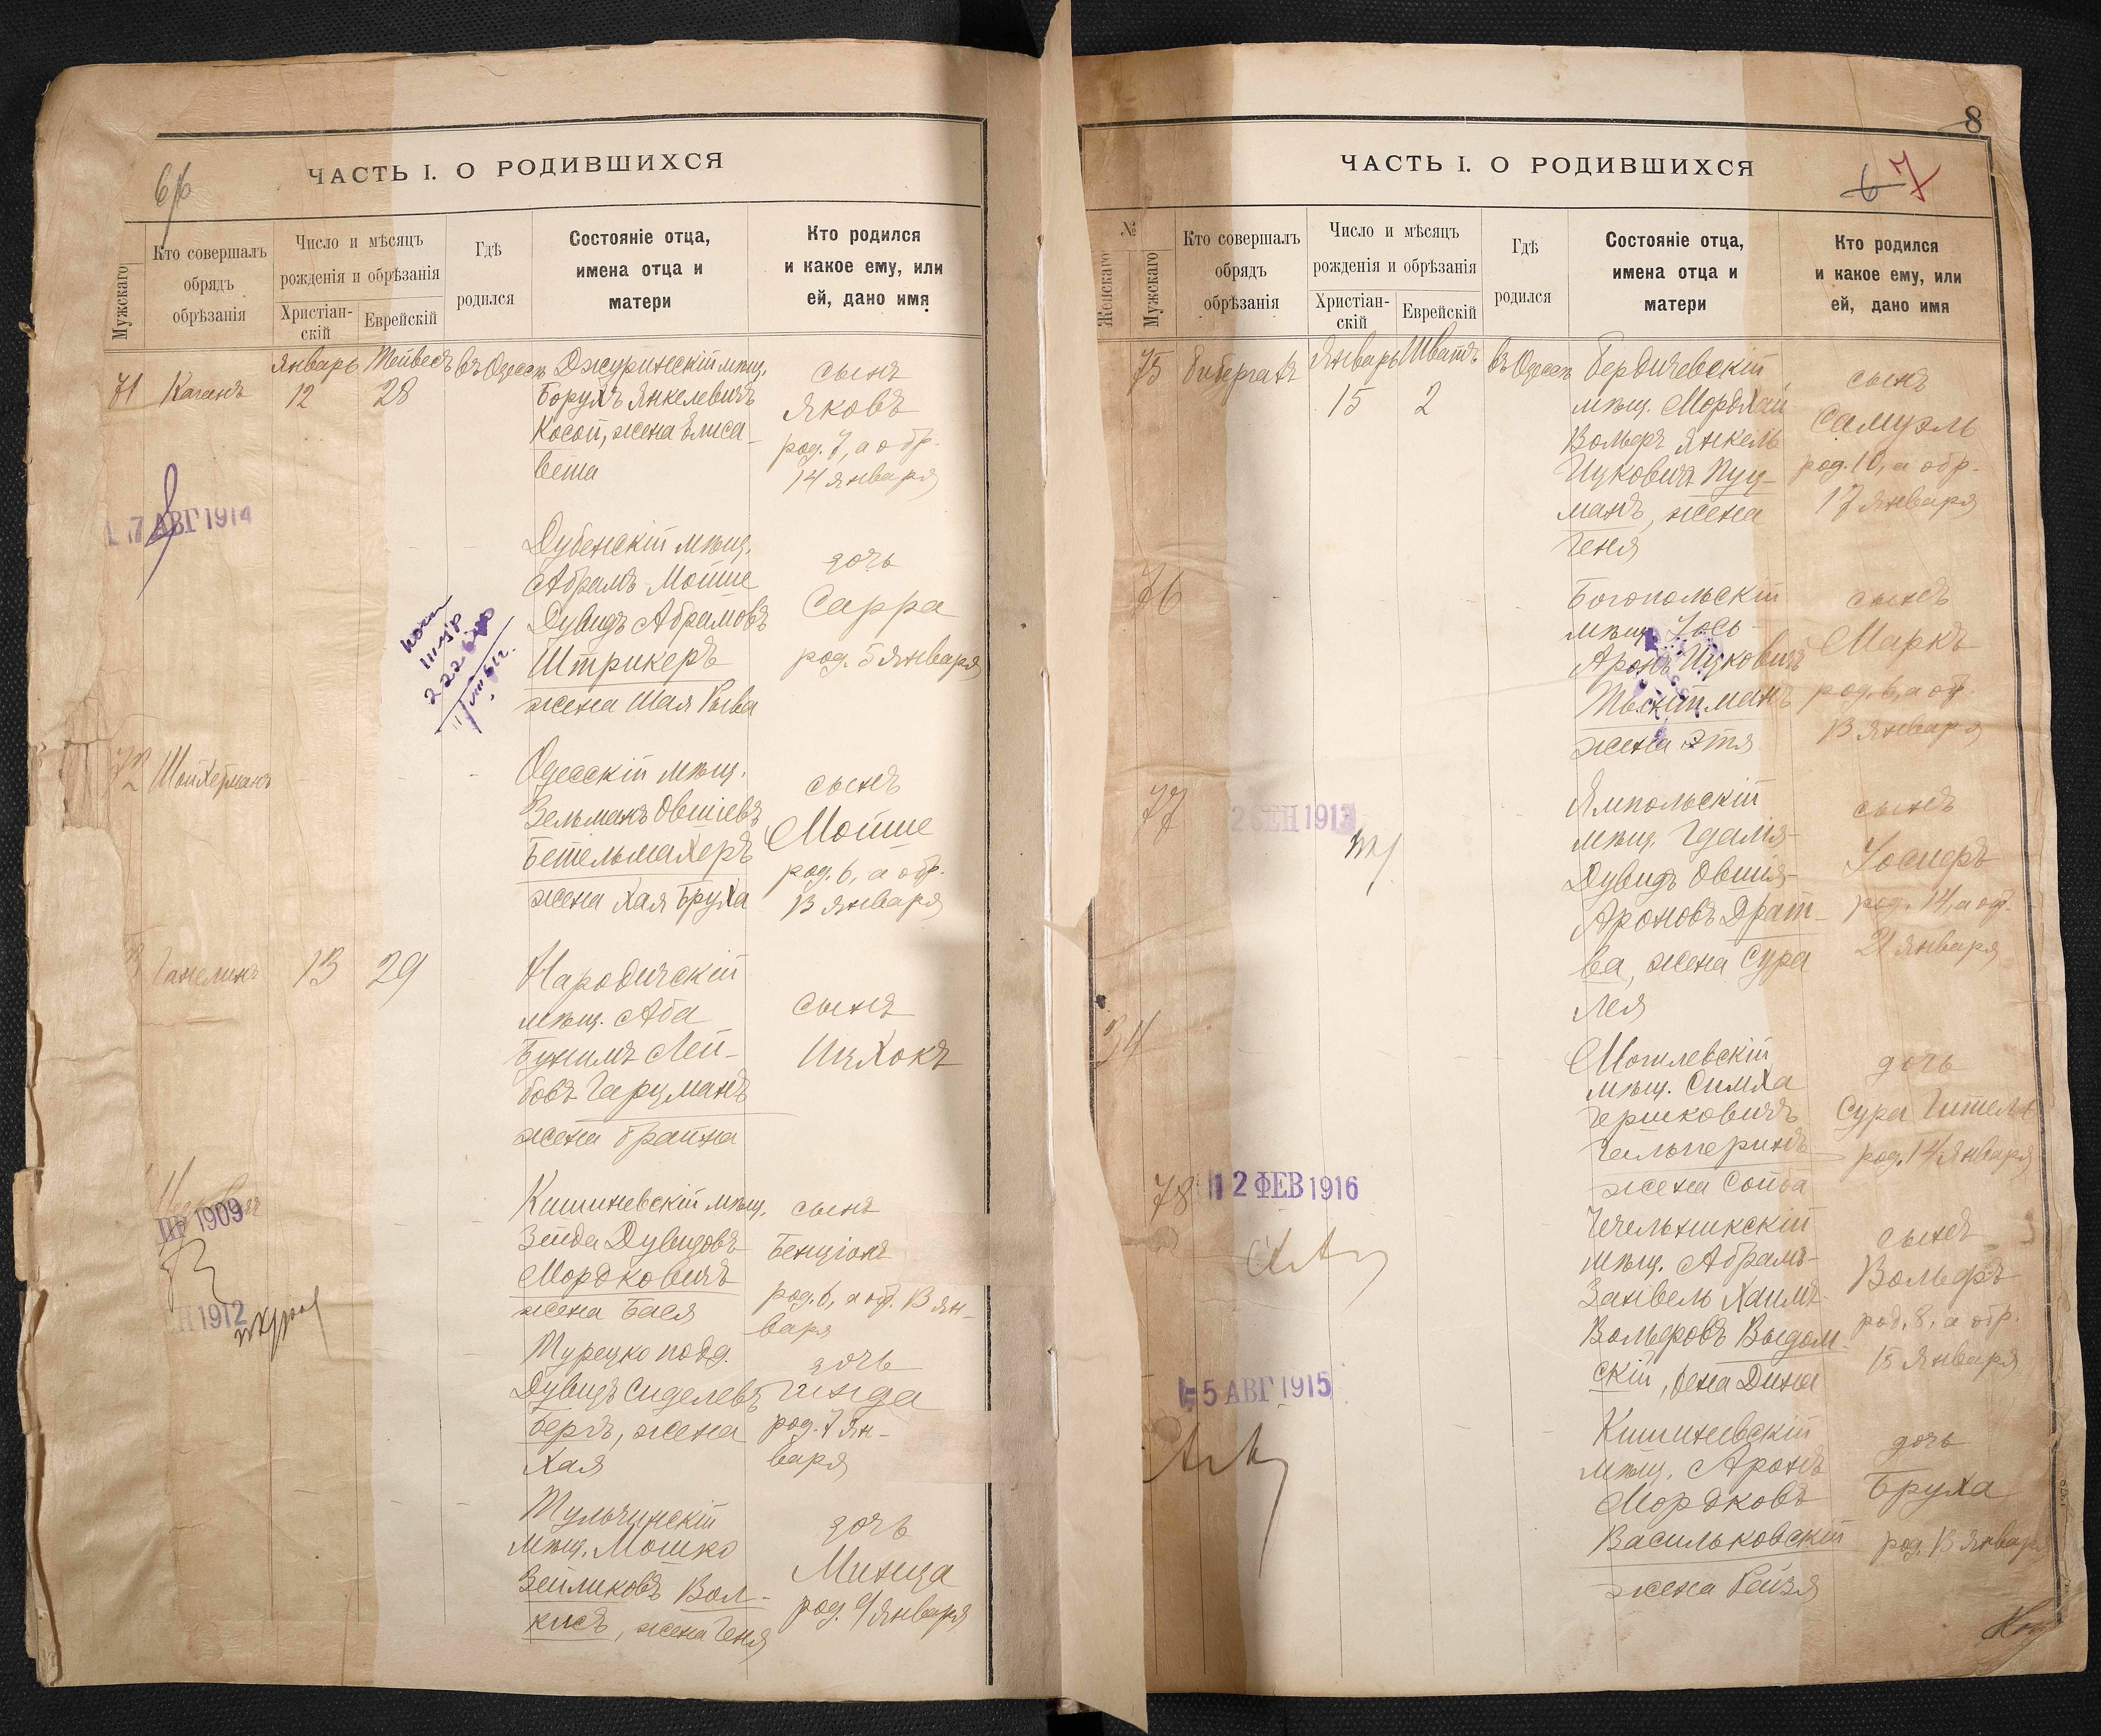 ЧАСТЬ I. О РОДИВШИХСЯ
Мужскаго
Кто совершалъ
обрядъ
обрѣзанія
Число и мѣсяцъ
рожденія и обрѣзанія
Христіан-
скій
Еврейскій
Гдѣ
родился
Состояніе отца,
имена отца и
матери
Кто родился
и какое ему, или
ей, дано имя
71
Каганъ
Январь
12
Тейвесъ
28
въ Одессѣ
Джуринскій мѣщ.
Борухъ Янкелевичъ
Косой, жена Елиса-
вета
сынъ
Яковъ
род. 7, а обр.
14 января
7 АВГ 1914
Дубенскій мѣщ.
Абрамъ-Мойше
Дувидъ Абрамовъ
Штрикеръ
жена Шая Рыва
дочь
Сарра
род. 5 января
72
Шойхетманъ
Одесскій мѣщ.
Зельманъ Овшіевъ
Бетельмахеръ
жена Хая Бруха
сынъ
Мойше
род. 6, а обр.
13 января
Ганелинъ
13
29
Народичскій
мѣщ. Аба
Бунимъ Лей-
бовъ Гарцманъ
жена Брайна
сынъ
Ицхокъ
1909
Кишиневскій мѣщ.
Зейда Дувидовъ
Мордковичъ
жена Бася
сынъ
Бенціонъ
род. 6, а обр. 13 ян-
варя
1912
Турецко подд.
Дувидъ Сиделевъ
Беръ, жена
Хая
дочь
Гинда
род. 7 ян-
варя
Тульчинскій
мѣщ. Мошко
Зейликовъ Вол-
кисъ, жена Геня
дочь
Минца
род. 9 января
8
6 7
ЧАСТЬ I. О РОДИВШИХСЯ
№
Женскаго
Мужскаго
Кто совершалъ
обрядъ
обрѣзанія
Число и мѣсяцъ
рожденія и обрѣзанія
Христіан-
скій
Еврейскій
Гдѣ
родился
Состояніе отца,
имена отца и
матери
Кто родился
и какое ему, или
ей, дано имя
75
Бибергалъ
Январь
15
Шватъ
2
въ Одессѣ
Бердичевскій
мѣщ. Мордхай
Вольфъ Янкель
Ицковичъ Пуц-
манъ, жена
Геня
сынъ
Самуэль
род. 10, а обр.
17 января
76
Богопольскій
мѣщ. Іось-
Аронъ Ицковичъ
жена Этя
сынъ
Маркъ
род. 6, а обр.
13 января
77
2 СЕН 1913
Ямпольскій
мѣщ. Гдалія-
Дувидъ Овшія-
Ароновъ Драт-
ва, жена Сура
Лея
сынъ
Іосифъ
род. 14, а обр.
21 января
34
Могилевскій
мѣщ. Симха
Гершковичъ
Гальперинъ
жена Сойба
дочь
Сура Гитель
род. 14 января
78
12 ФЕВ 1916
Чечельникскій
мѣщ. Абрамъ-
Занвель Хаимъ-
Вольфовъ Выдом-
скій, жена Дина
сынъ
Вольфъ
род. 8, а обр.
15 января
5 АВГ 1915
Кишиневскій
мѣщ. Аронъ
Мордковъ
Васильковскій
жена Рейзя
дочь
Бруха
род. 13 января